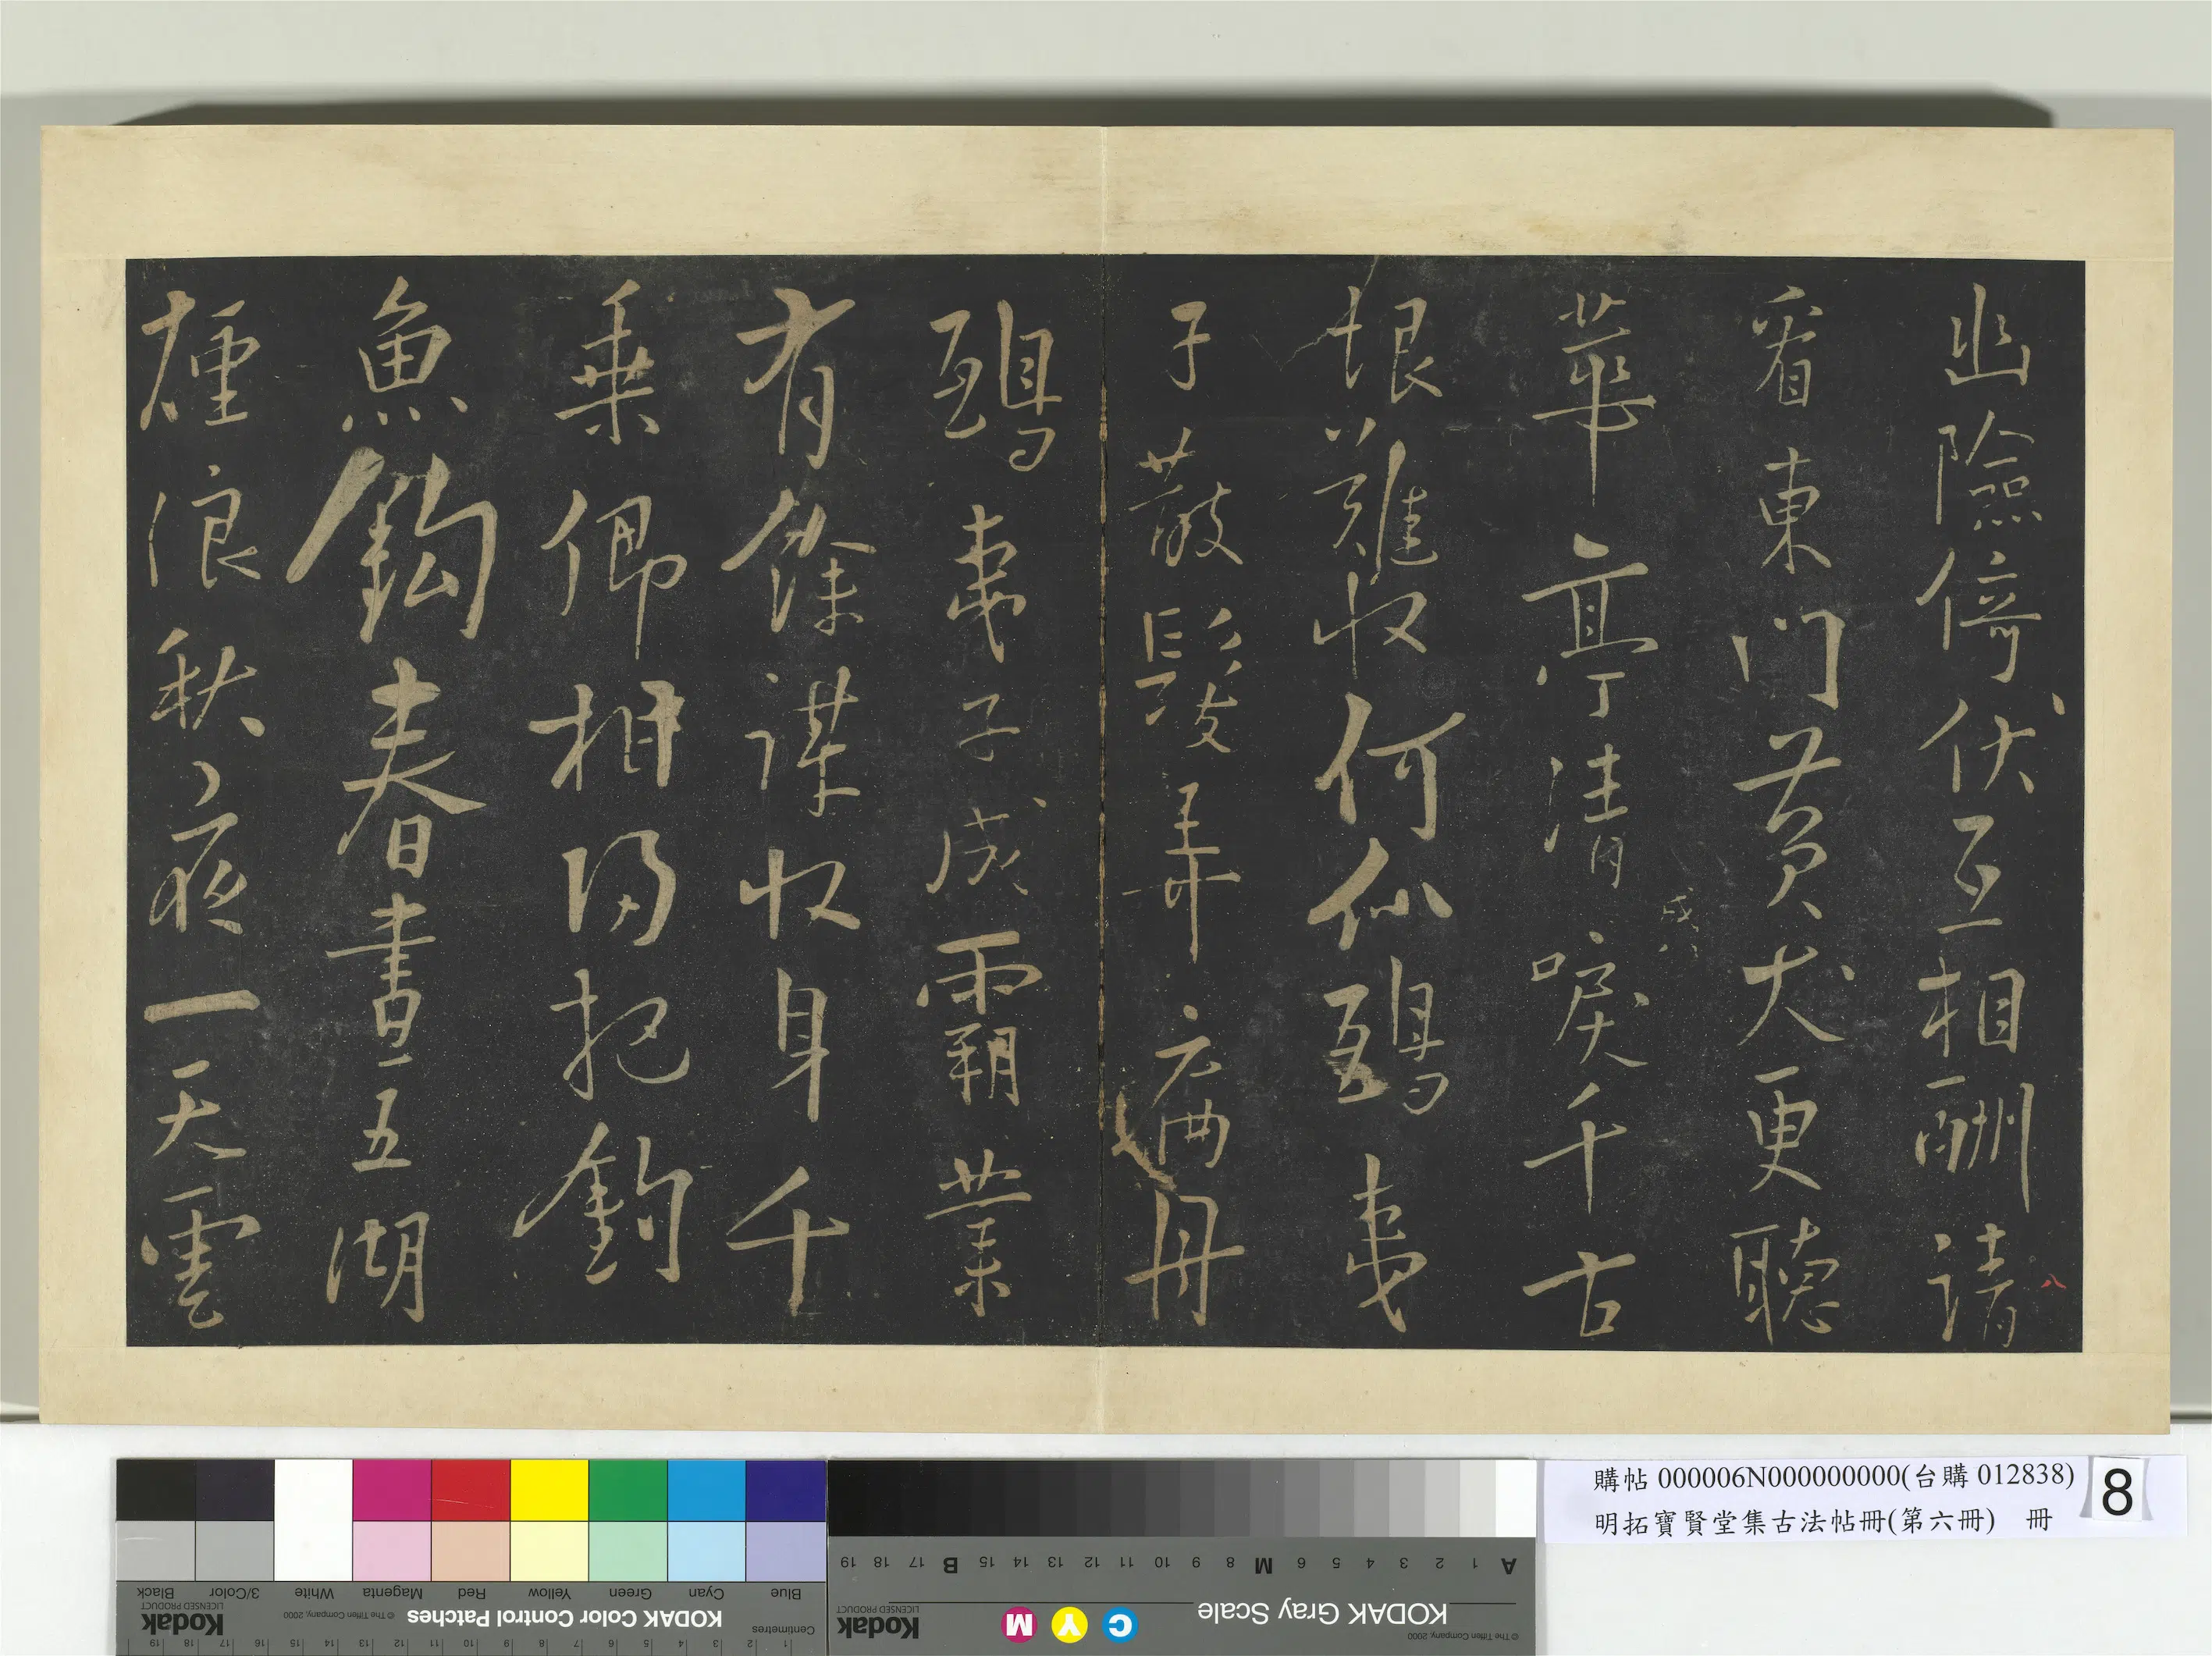 幽險倚伏互相酬請
看東門黃犬更聽
華亭清唳千古
恨難收何似鴟夷
子散髮弄扁舟
鴟夷子成霸業
有餘謀收身千
乘卿相歸把釣
魚鈎春晝五湖
煙浪秋夜一天雲
八
購帖 000006N000000000(台購 012838)
明拓寶賢堂集古法帖冊(第六冊) 冊
8
Blue Cyan Green Yellow Red Magenta White 3/Color Black
KODAK Color Control Patches © The Tiffen Company, 2000 Kodak LICENSED PRODUCT
Centimetres 1 2 3 4 5 6 7 8 9 10 11 12 13 14 15 16 17 18 19
A 1 2 3 4 5 6 M 8 9 10 11 12 13 14 15 B 17 18 19
KODAK Gray Scale C Y M Kodak LICENSED PRODUCT
© The Tiffen Company, 2000